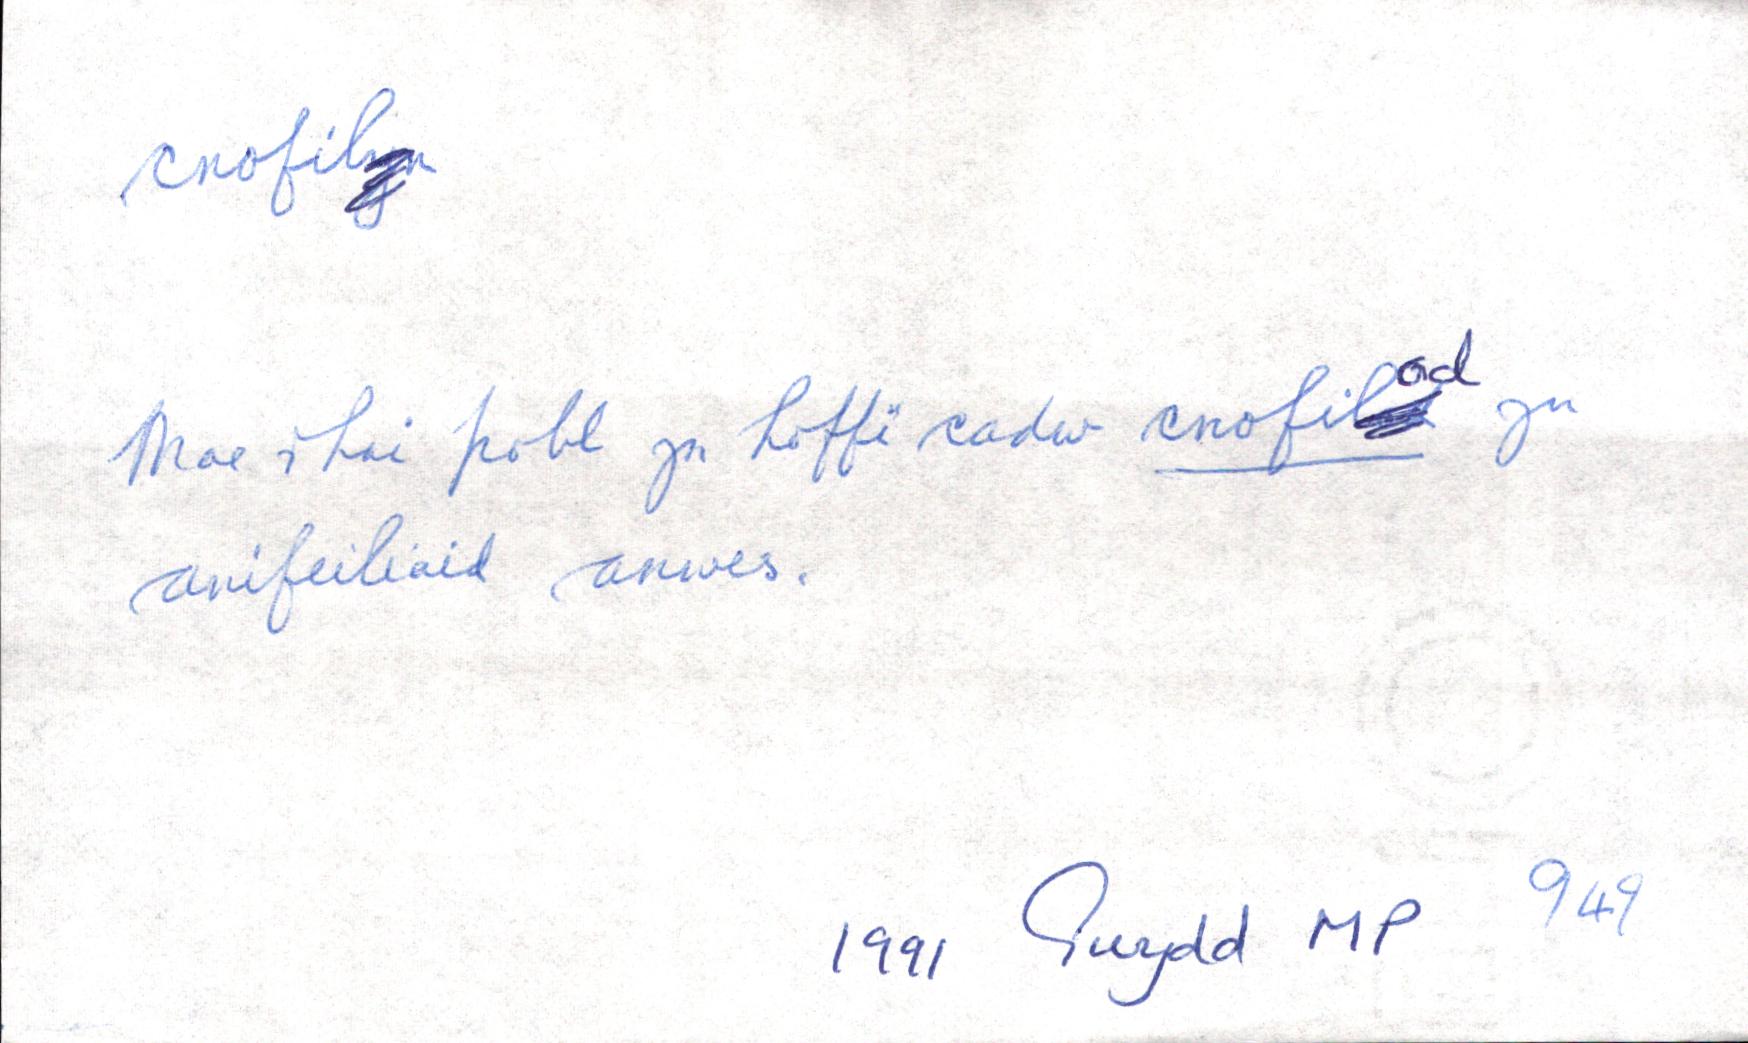 cnofilyn
Mae rhai pobl yn hoffi cadw cnofilod yn
anifeiliaid anwes.
1991 Gwydd MP 949